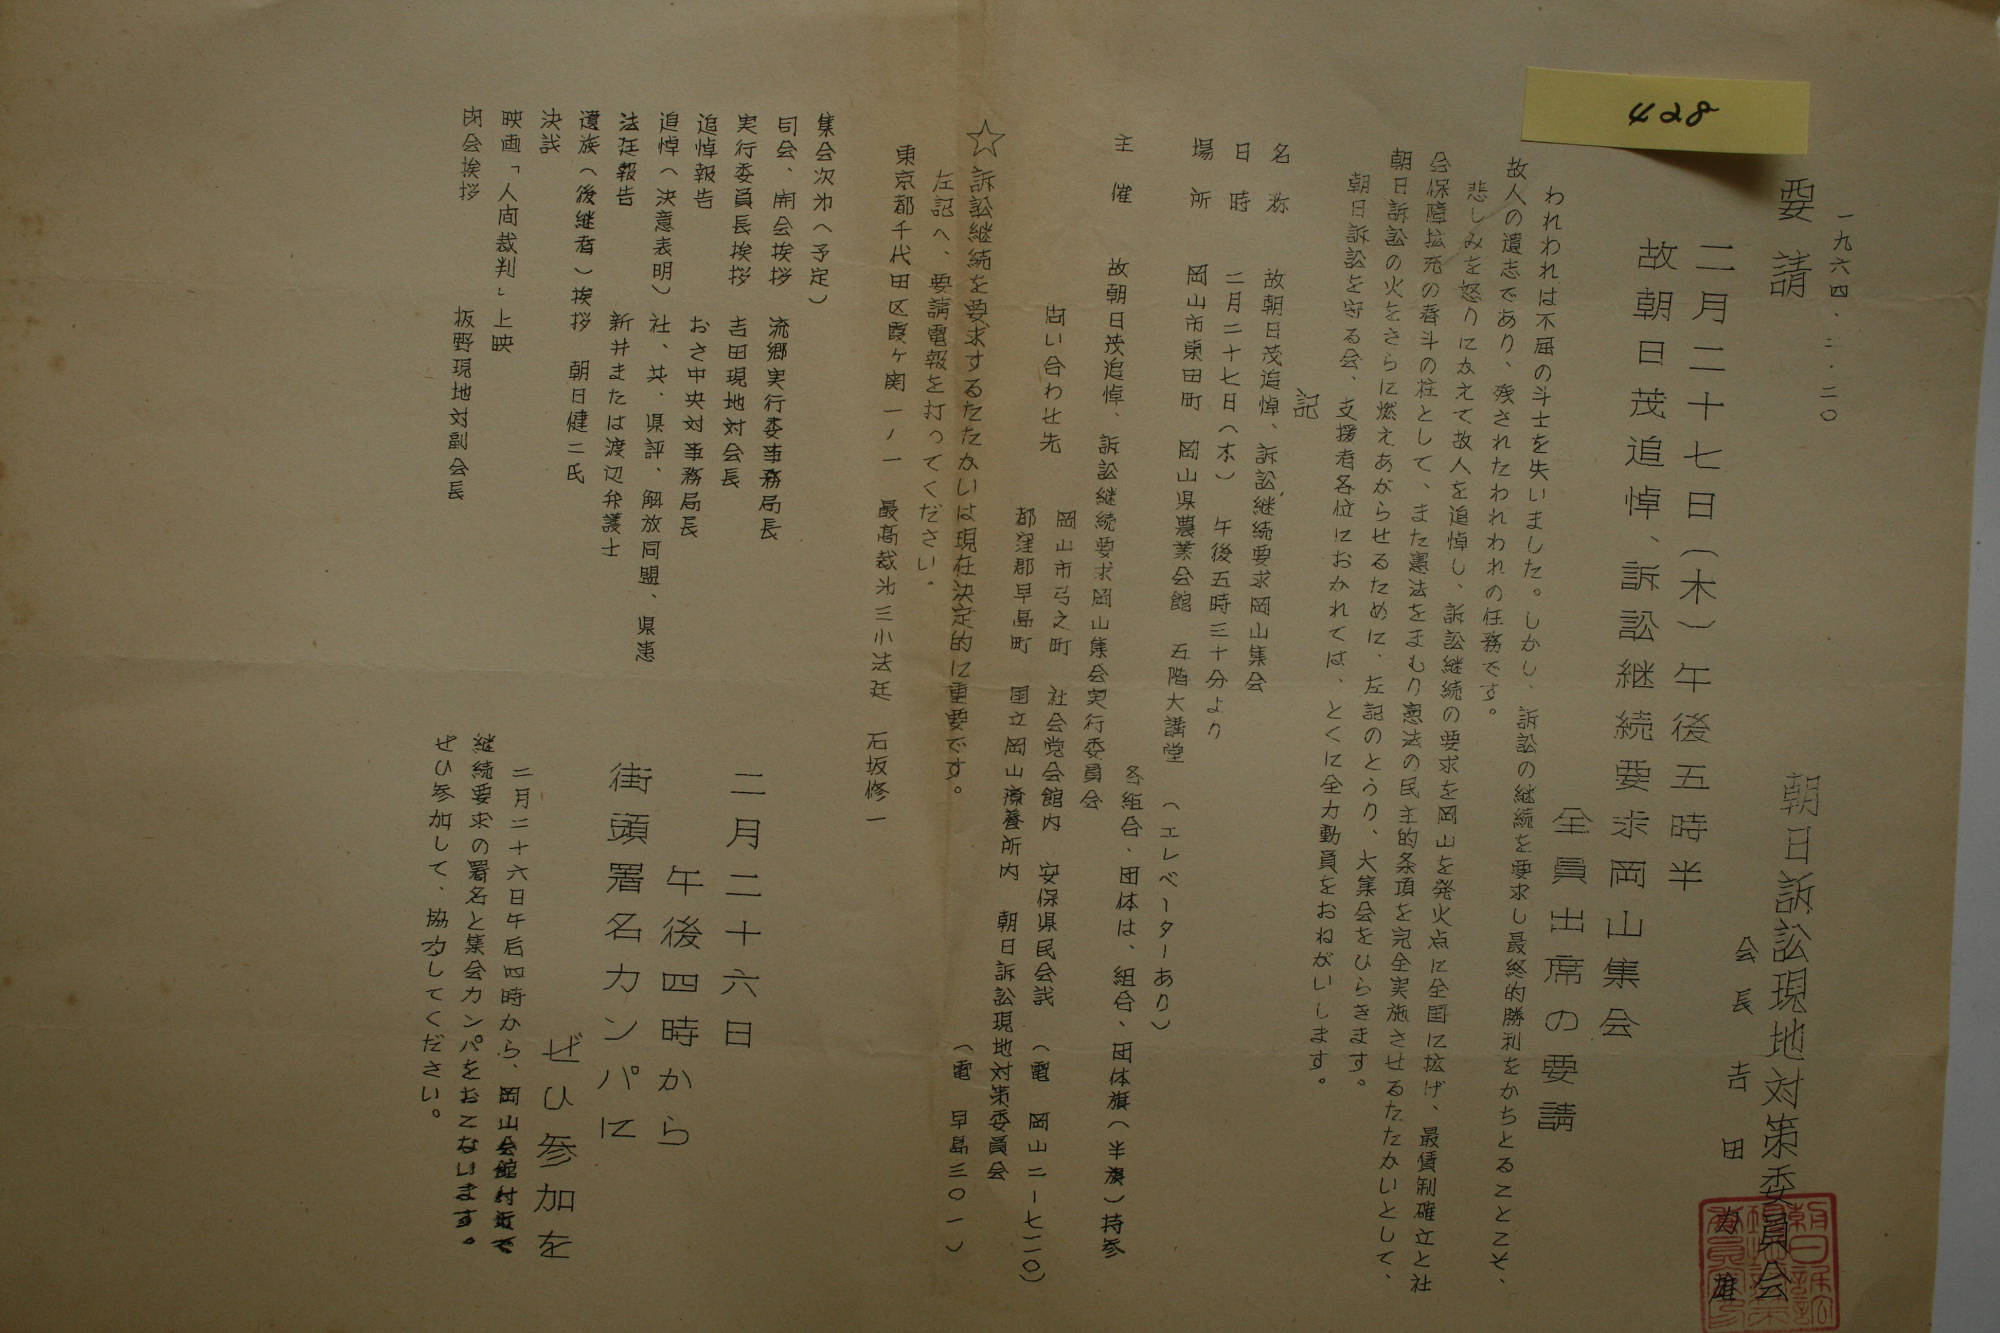 428
一九六四.二.二〇
要請
朝日訴訟現地対策委員会
会長 吉田力雄
二月二十七日(木)午後五時半
故朝日茂追悼、訴訟継続要求岡山集会
全員出席の要請
われわれは不屈の斗士を失いました。しかし、訴訟の継続を要求し最終的勝利をかちとることこそ、
故人の遺志であり、残されたわれわれの任務です。
悲しみを怒りにかえて故人を追悼し、訴訟継続の要求を岡山を発火点に全国に拡げ、最賃制確立と社
会保障拡充の春斗の柱として、また憲法をまもり憲法の民主的条項を完全実施させるたたかいとして、
朝日訴訟の火をさらに燃えあがらせるために、左記のとうり、大集会をひらきます。
朝日訴訟を守る会、支援者各位におかれては、とくに全力動員をおねがいします。
記
名称 故朝日茂追悼、訴訟継続要求岡山集会
日時 二月二十七日(木) 午後五時三十分より
場所 岡山市東田町 岡山県農業会館 五階大講堂 (エレベーターあり)
各組合、団体は、組合、団体旗(半旗)持参
主催 故朝日茂追悼、訴訟継続要求岡山集会実行委員会
問い合わせ先
岡山市弓之町 社会党会館内 安保県民会议 (電 岡山二-七二〇)
都窪郡早島町 国立岡山療養所内 朝日訴訟現地対策委員会
(電 早島三〇一)
☆訴訟継続を要求するたたかいは現在決定的に重要です。
左記へ、要請電報を打ってください.
東京都千代田区霞ヶ関一ノ一 最高裁才三小法廷 石坂修一
集会次才(予定)
司会、開会挨拶 流郷実行委事務局長
実行委員長挨拶 吉田現地対会長
追悼報告 おさ中央対事務局長
追悼(決意表明) 社、共、県評、解放同盟、県患
法廷報告 新井または渡辺弁護士
遺族(後継者)挨拶 朝日健二氏
決议
映画「人间裁判」上映
闭会挨拶 板野現地対副会長
二月二十六日
午後四時から
街頭署名カンパに
ぜひ参加を
二月二十六日午后四時から、岡山会館付近で
継続要求の署名と集会カンパをおこないます。
ぜひ参加して、協力してください。